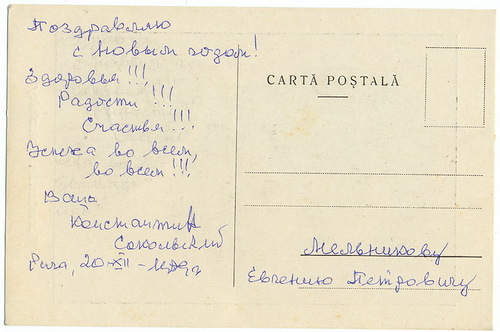 Поздравляю
с Новым годом!
Здоровья!!!
Радости!!!
Счастья!!!
Успеха во всем,
во всем!!!
Ваш
Константин
Сокольский
Рига, 20-XII-
CARTĂ POȘTALĂ
Мельникову
Евгению Петровичу